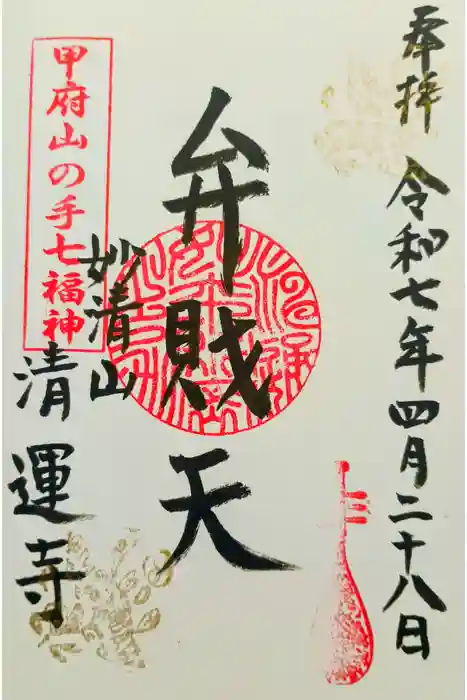 奉拝 令和七年四月二十八日
弁財天
甲府山の手七福神
妙清山
清運寺